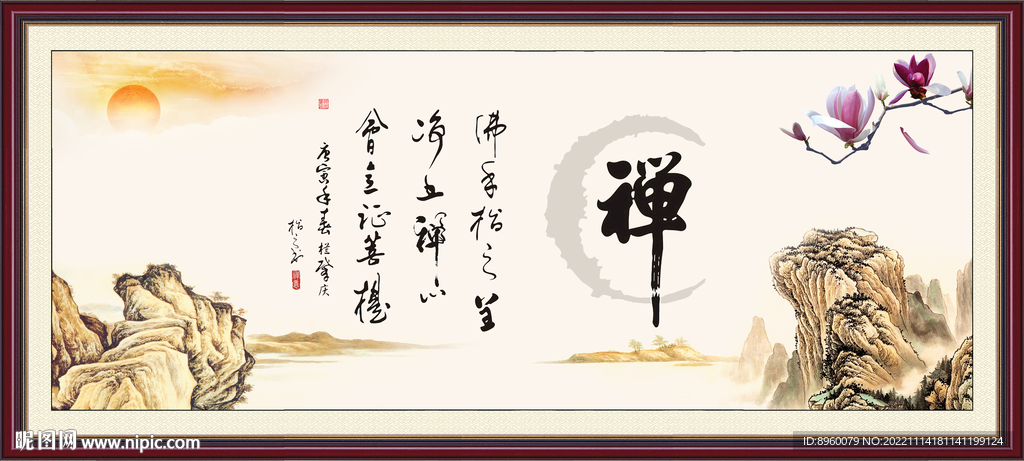 禅
佛手指之
禪心
會立证菩提
庚寅年春於肇庆
昵图网 www.nipic.com
ID:8960079 NO:20221114181141199124